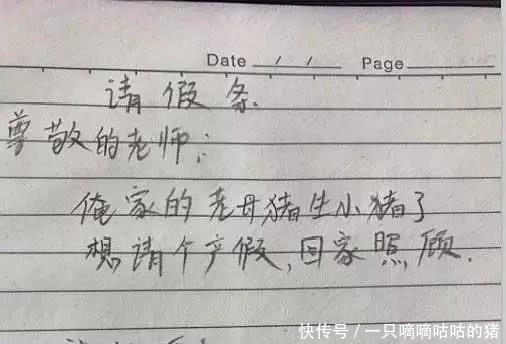 Date / / Page
请假条.
尊敬的老师:
俺家的老母猪生小猪了
想请个产假,回家照顾.
快传号/一只嘀嘀咕咕的猪